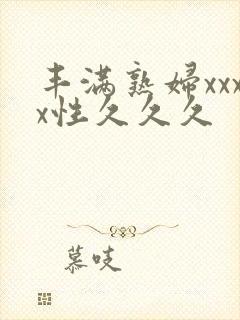 丰满熟妇xxx
x性久久久
慕吱